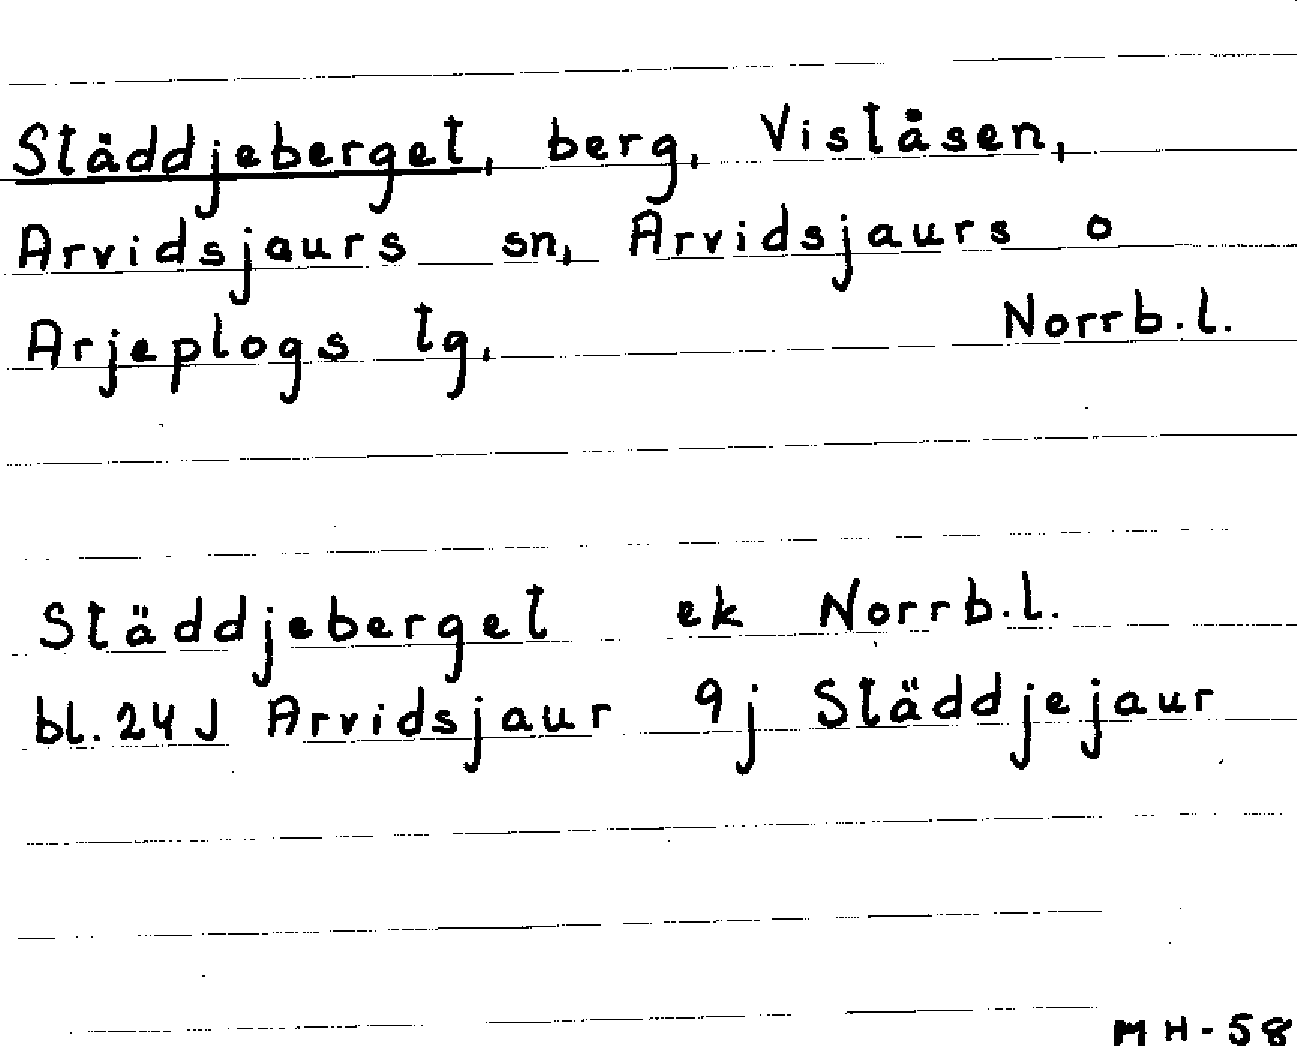 Städdjeberget, berg, Viståsen,
Arvidsjaurs sn, Arvidsjaurs o
Arjeplogs tg. Norrb.l.
Städdjeberget ek Norrb.l.
bl. 24 J Arvidsjaur 9j Städdjejaur
MH-58